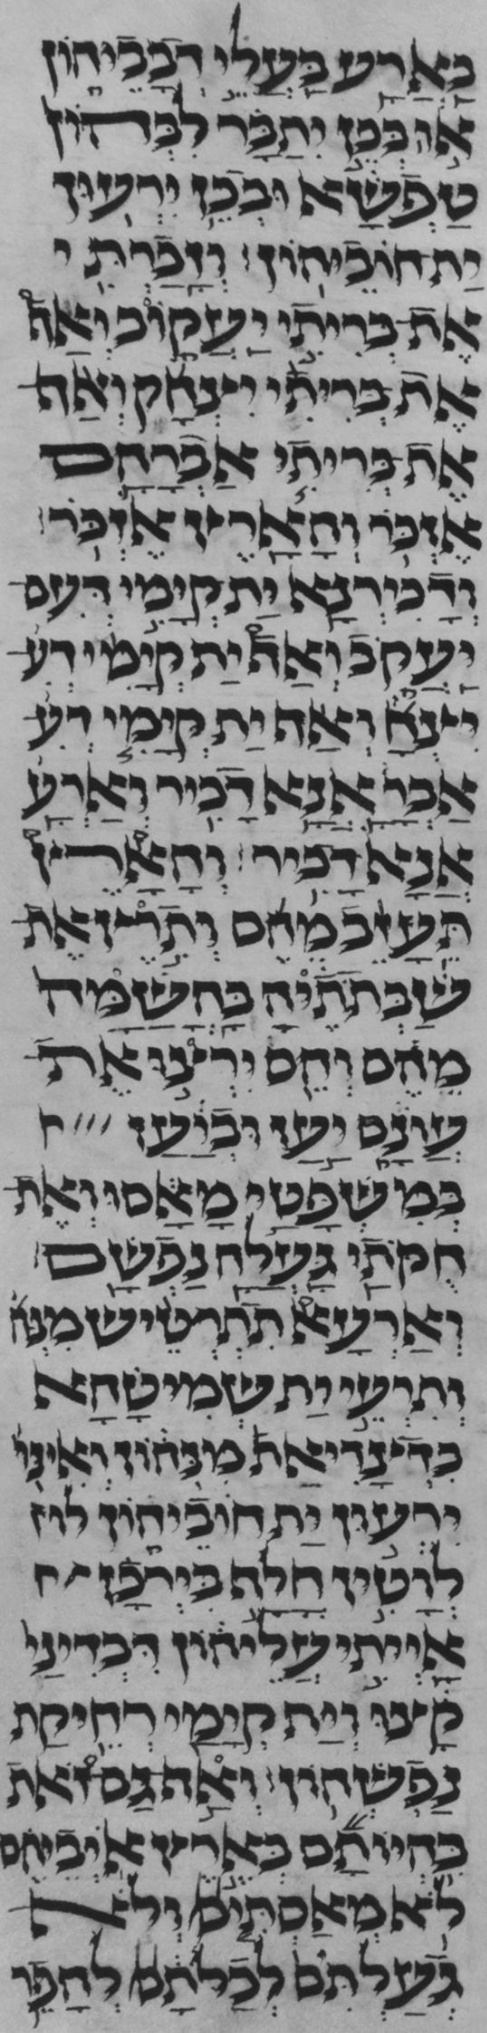 בארע בעלי דבביהון
או בכן יתבר לבהון
טפשא ובכן ירעון
ית חוביהון׃ וזכרתי י
את בריתי יעקוב ואף
את בריתי יצחק ואף
את בריתי אברהם
אזכר והארץ אזכר׃
ודכירנא ית קימי דעם
יעקב ואף ית קימי דע
יצח ואף ית קימי דע
אבר אנא דכיר וארע
אנא דכיר׃ והארץ
תעזב מהם ותרץ את
שבתתיה בהשמה
מהם והם ירצו את
עונם יען וביען
במשפטי מאסו ואת
חקתי געלה נפשם׃
וארעא תתרטיש מנה
ותרעי ית שמיטהא
בדיצדיאת מנהון ואינו
ירעון ית חוביהון לוז
לוטין חלף בירכן
אייתי עליהון דבדיני
קצו וית קימי רחיקת
נפשהון׃ ואף גם זאת
בהיותם בארץ איביהם
לא מאסתים ולא
געלתם לכלתם להפר